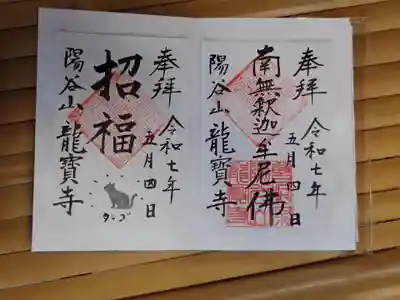 奉拝
令和七年
五月四日
南無釈迦牟尼佛
陽谷山
龍寶寺
奉拝
令和七年
五月四日
招福
陽谷山
龍寶寺